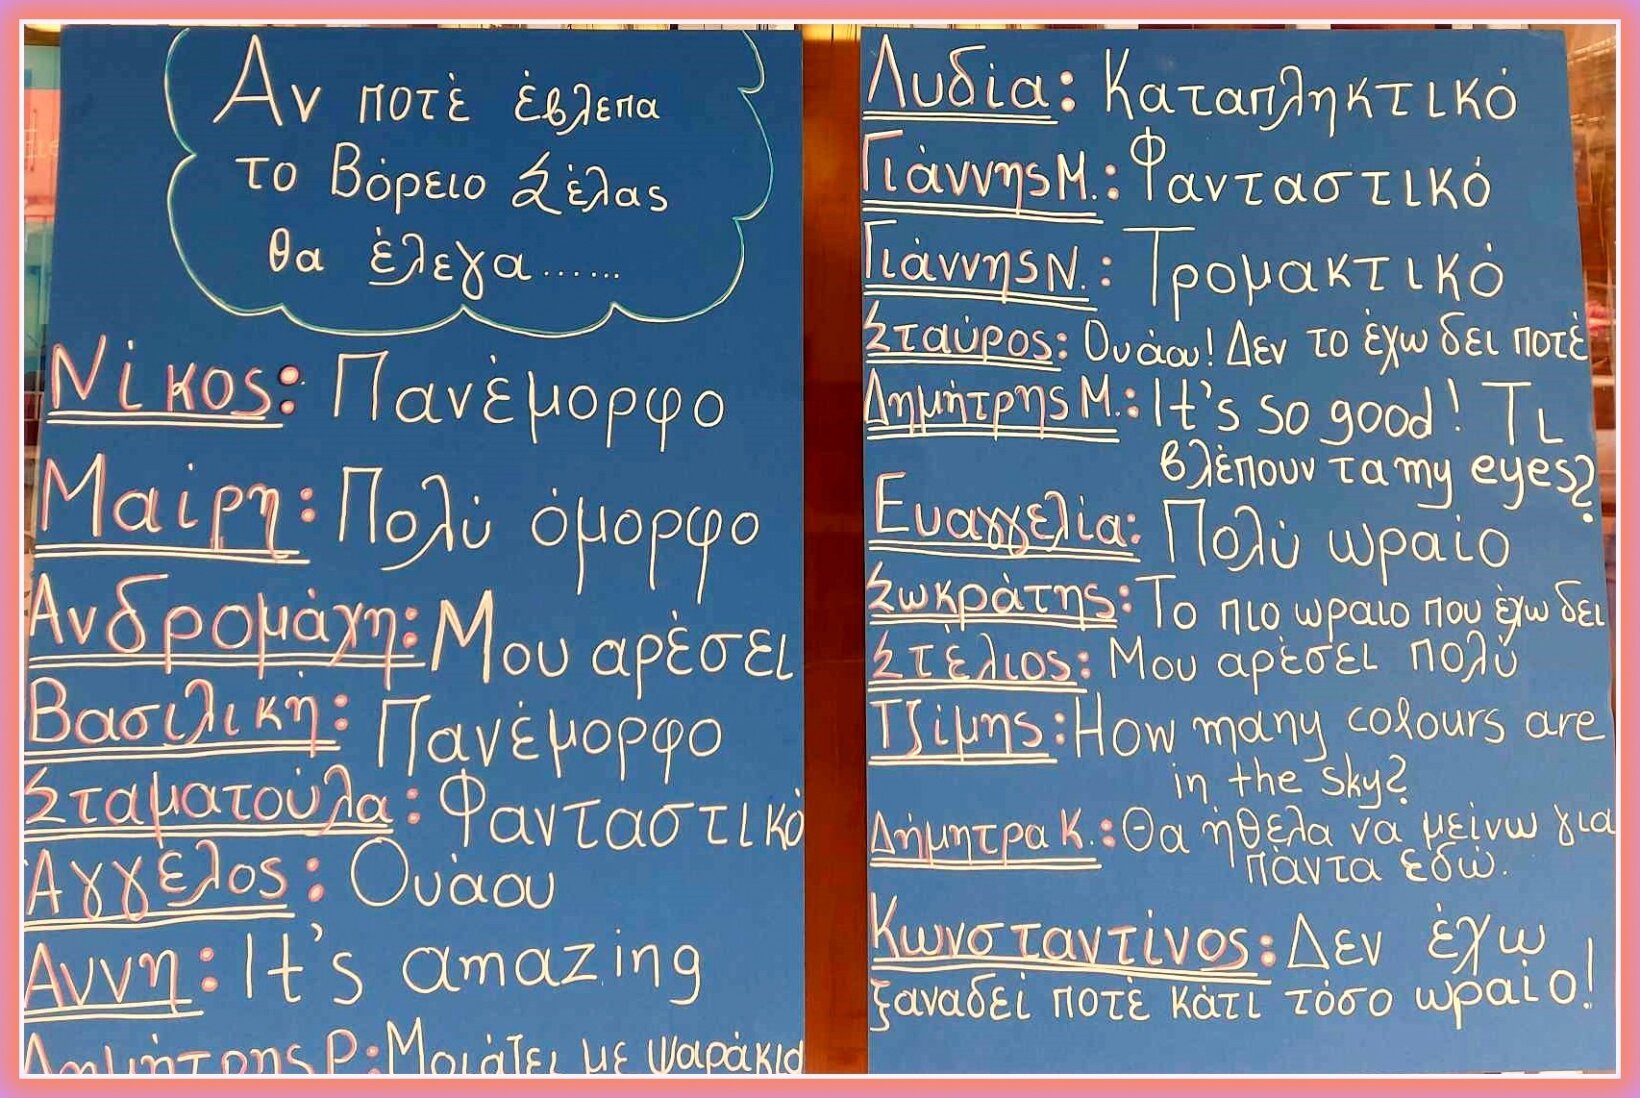 Αν ποτέ έβλεπα
το Βόρειο Σέλας
θα έλεγα......
Νίκος: Πανέμορφο
Μαίρη: Πολύ όμορφο
Ανδρομάχη: Μου αρέσει
Βασιλική: Πανέμορφο
Σταματούλα: Φανταστικό
Άγγελος: Ουάου
Αννη: It's amazing
Δημήτρης Ρ: Μοιάζει με ψαράκια
Λυδία: Καταπληκτικό
Γιάννης Μ.: Φανταστικό
Γιάννης Ν.: Τρομακτικό
Σταύρος: Ουάου! Δεν το έχω δει ποτέ
Δημήτρης Μ.: It's so good! Τι
βλέπουν τα my eyes?
Ευαγγελία: Πολύ ωραίο
Σωκράτης: Το πιο ωραιο που έχω δει
Στέλιος: Μου αρέσει πολύ
Τζίμης: How many colours are
in the sky?
Δήμητρα Κ.: Θα ήθελα να μείνω για
πάντα εδώ.
Κωνσταντίνος: Δεν έχω
ξαναδεί ποτέ κάτι τόσο ωραίο!